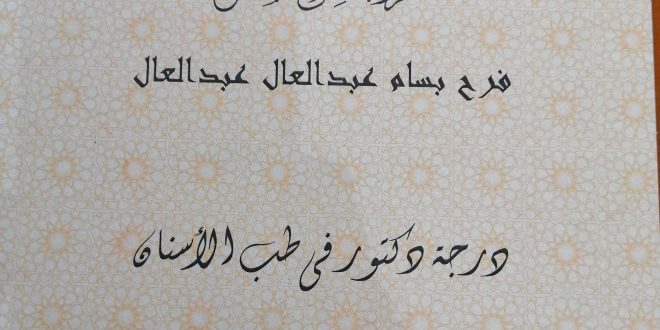 فرح بسام عبدالعال عبدالعال
درجة دكتور في طب الأسنان